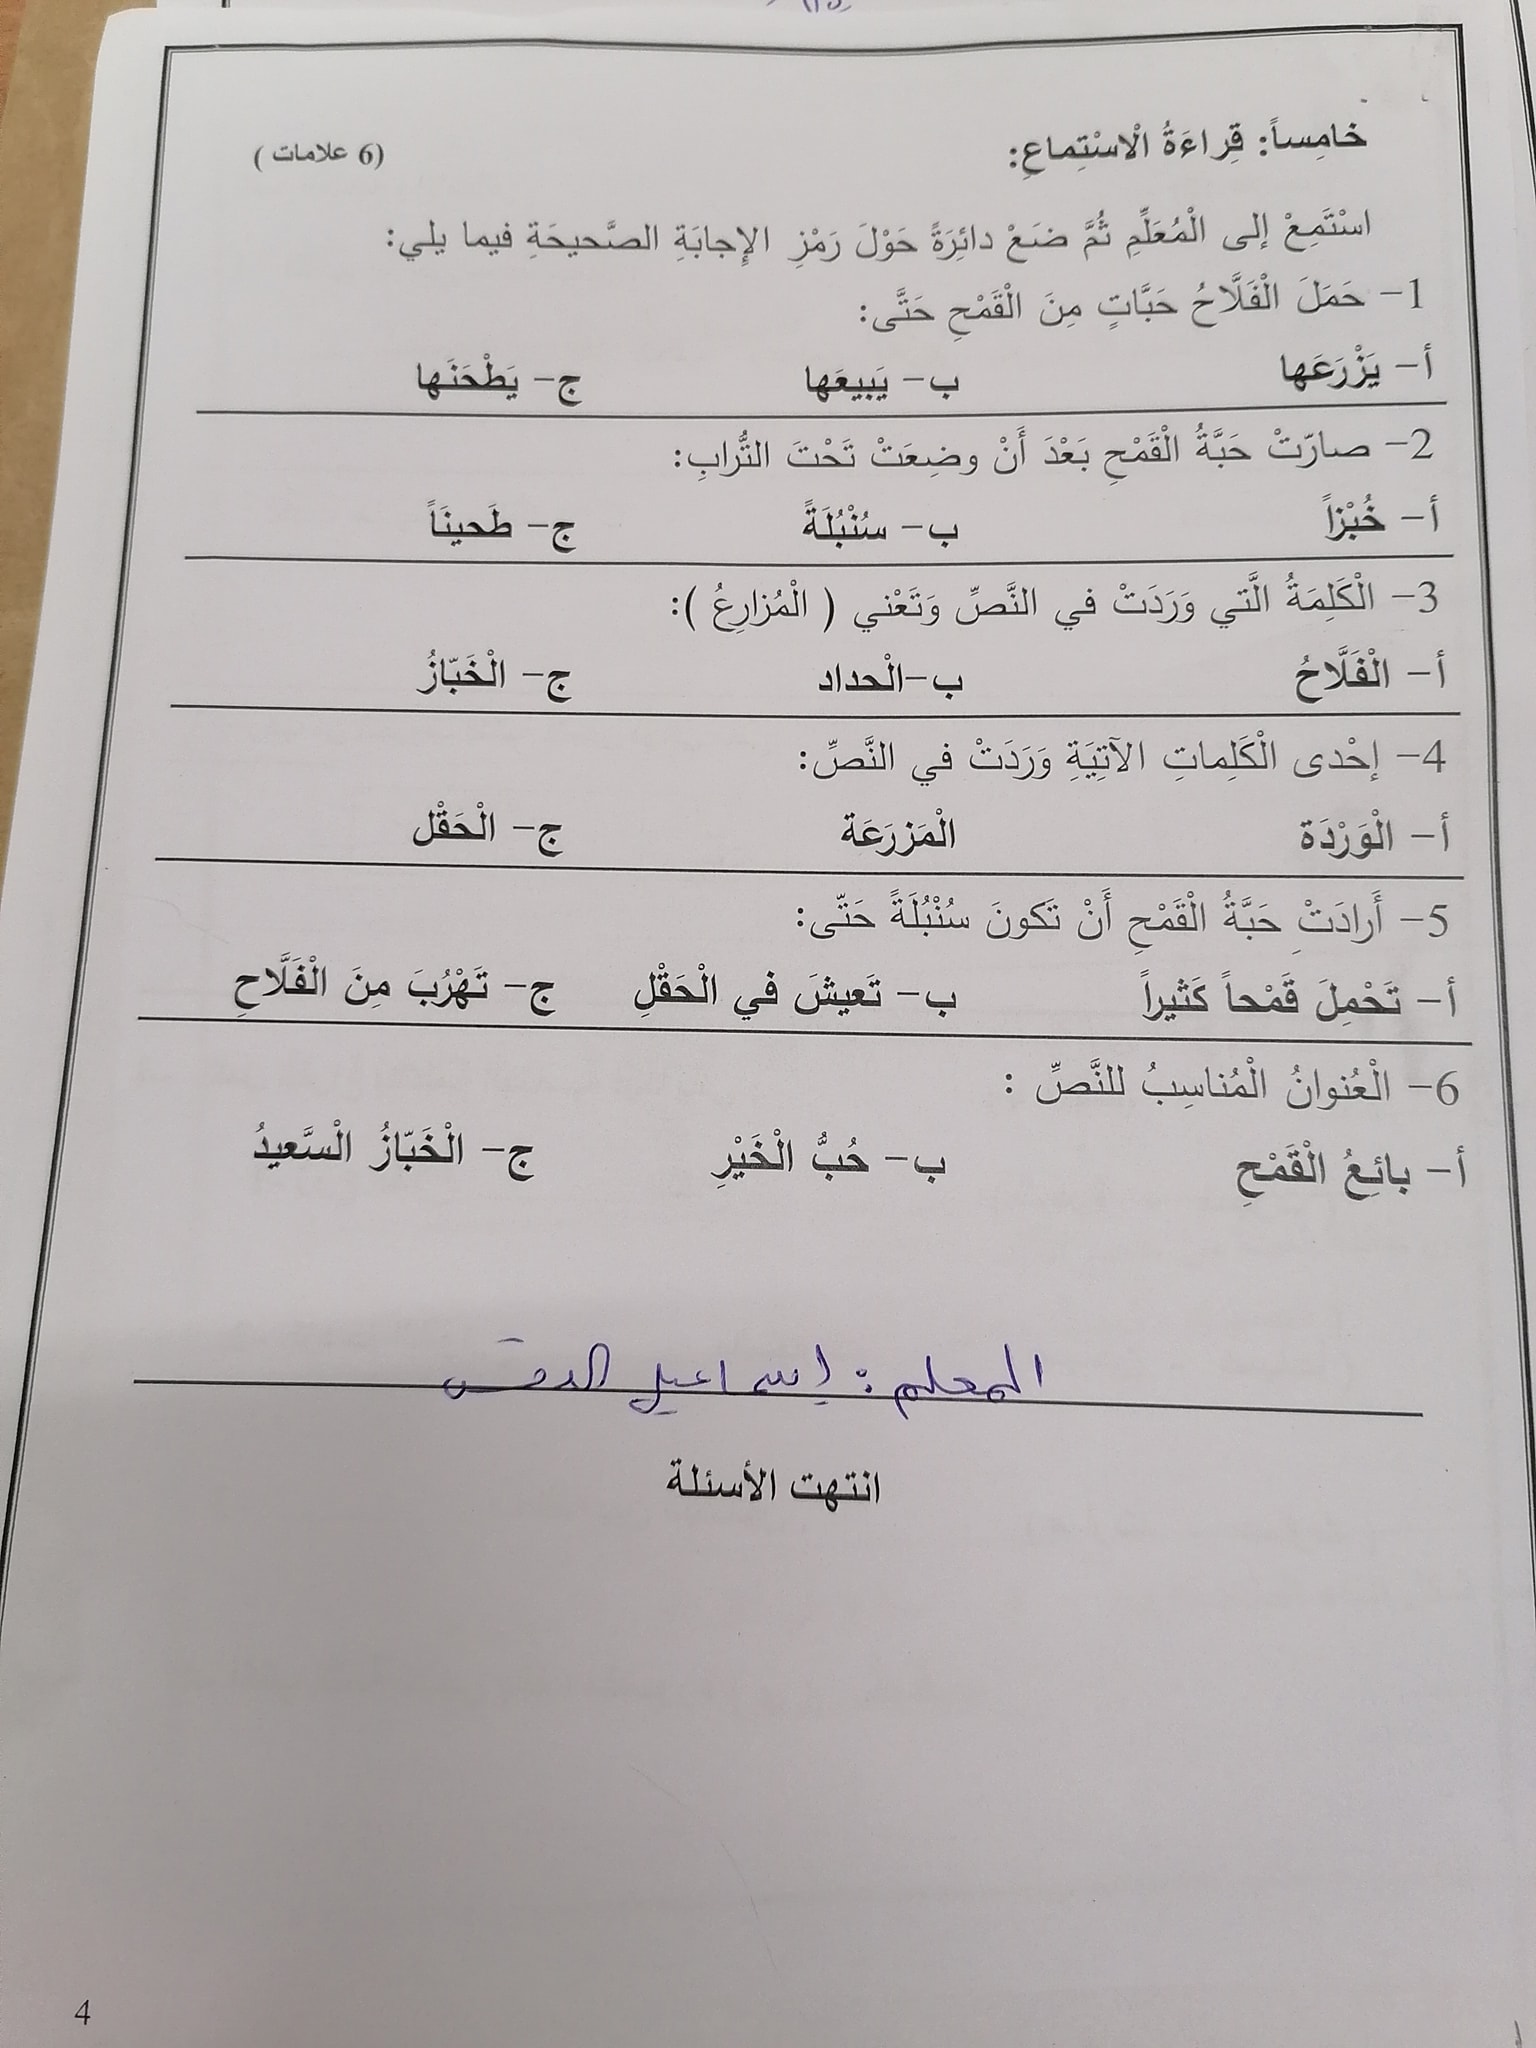 خامِساً: قِراءَةُ الْاسْتِماعِ: (6 علامات )
اسْتَمِعْ إلى الْمُعَلِّمِ ثُمَّ ضَعْ دائِرَةً حَوْلَ رَمْزِ الإِجابَةِ الصَّحيحَةِ فيما يلي:
1- حَمَلَ الْفَلَّاحُ حَبَّاتٍ مِنَ الْقَمْحِ حَتَّى:
أ- يَزْرَعَها ب- يَبيعَها ج- يَطْحَنَها
2- صارّتْ حَبَّةُ الْقَمْحِ بَعْدَ أَنْ وضِعَتْ تَحْتَ التُّرابِ:
أ- خُبْزاً ب- سُنْبُلَةً ج- طَحينَاً
3- الْكَلِمَةُ الَّتي وَرَدَتْ في النَّصِّ وَتَعْني ( الْمُزارِعُ ):
أ- الْفَلَّاحُ ب-الْحداد ج- الْخَبّازُ
4- إحْدى الْكَلِماتِ الآتِيَةِ وَرَدَتْ في النَّصِّ:
أ- الْوَرْدَة الْمَزرَعَة ج- الْحَقْل
5- أَرادَتْ حَبَّةُ الْقَمْحِ أَنْ تَكونَ سُنْبُلَةً حَتّى:
أ- تَحْمِلَ قَمْحاً كَثيراً ب- تَعيشَ في الْحَقْلِ ج- تَهْرُبَ مِنَ الْفَلَّاحِ
6- الْعُنوانُ الْمُناسِبُ للنَّصِّ :
أ- بائِعُ الْقَمْحِ ب- حُبُّ الْخَيْرِ ج- الْخَبّازُ الْسَّعيدُ
المعلم: إسماعيل
انتهت الأسئلة
4